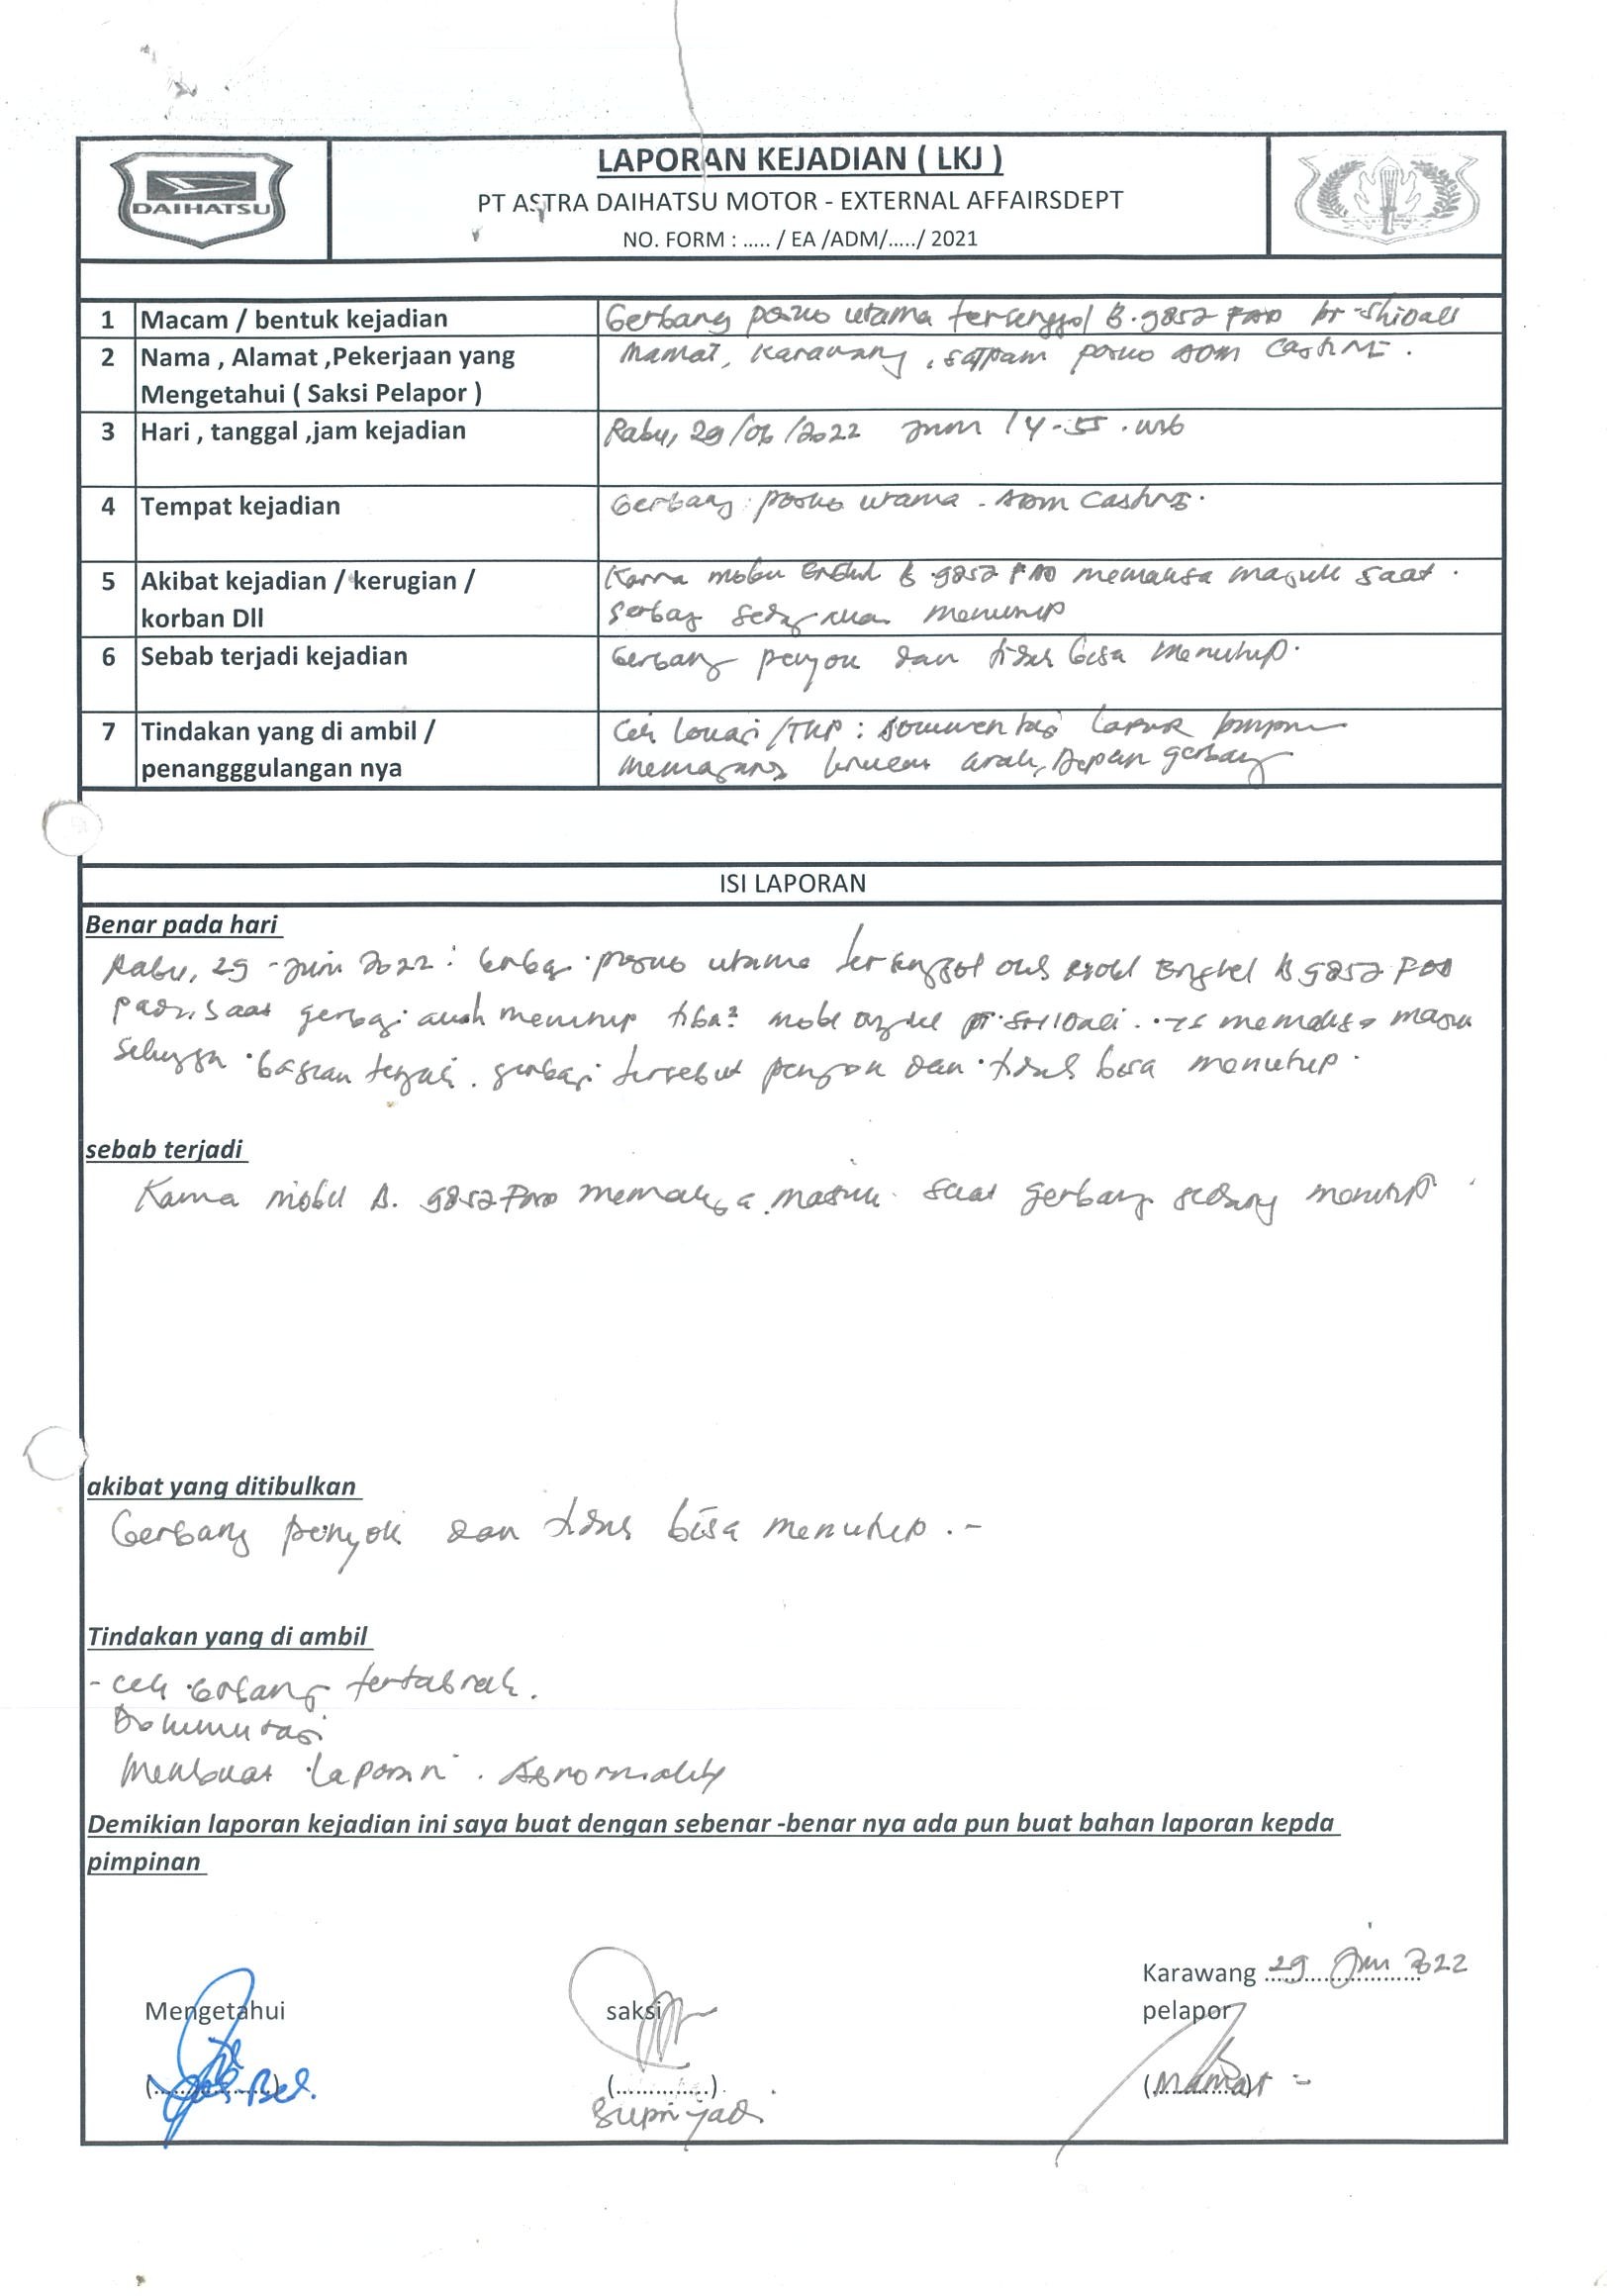 DAIHATSU
LAPORAN KEJADIAN ( LKJ )
PT ASTRA DAIHATSU MOTOR - EXTERNAL AFFAIRSDEPT
NO. FORM : ..... / EA /ADM/...../ 2021
1 Macam / bentuk kejadian
Gerbang posko utama tersenggol B.9852 PT
2 Nama , Alamat ,Pekerjaan yang
Mengetahui ( Saksi Pelapor )
Mamat, Karawang, satpam posko ADM Casting.
3 Hari , tanggal ,jam kejadian
Rabu, 29/06/2022 14.55.wib
4 Tempat kejadian
Gerbang posko utama - ADM Casting.
5 Akibat kejadian / kerugian /
korban Dll
Karna mobil Engkel B.9852 memaksa masuk saat
menutup
6 Sebab terjadi kejadian
Gerbang penyok dan tidak bisa menutup.
7 Tindakan yang di ambil /
penangggulangan nya
Cek Lokasi/TKP : Dokumentasi Lapor
memasang arah, Depan gerbang
ISI LAPORAN
Benar pada hari
Rabu, 29 - Juni 2022 : posko utama tersenggol Engkel B 9852
saat menutup tiba2 memaksa masuk
Sehingga bagian tengah tersebut penyok dan tidak bisa menutup.
sebab terjadi
Karna mobil B. 9852 memaksa masuk saat gerbang sedang menutup
akibat yang ditibulkan
Gerbang penyok dan tidak bisa menutup.-
Tindakan yang di ambil
- cek tertabrak.
Dokumentasi
Membuat Laporan. Abnormality
Demikian laporan kejadian ini saya buat dengan sebenar -benar nya ada pun buat bahan laporan kepda
pimpinan
Karawang 29 Juni 2022
Mengetahui saksi pelapor
(..............) (Mamat)
Supriyadi